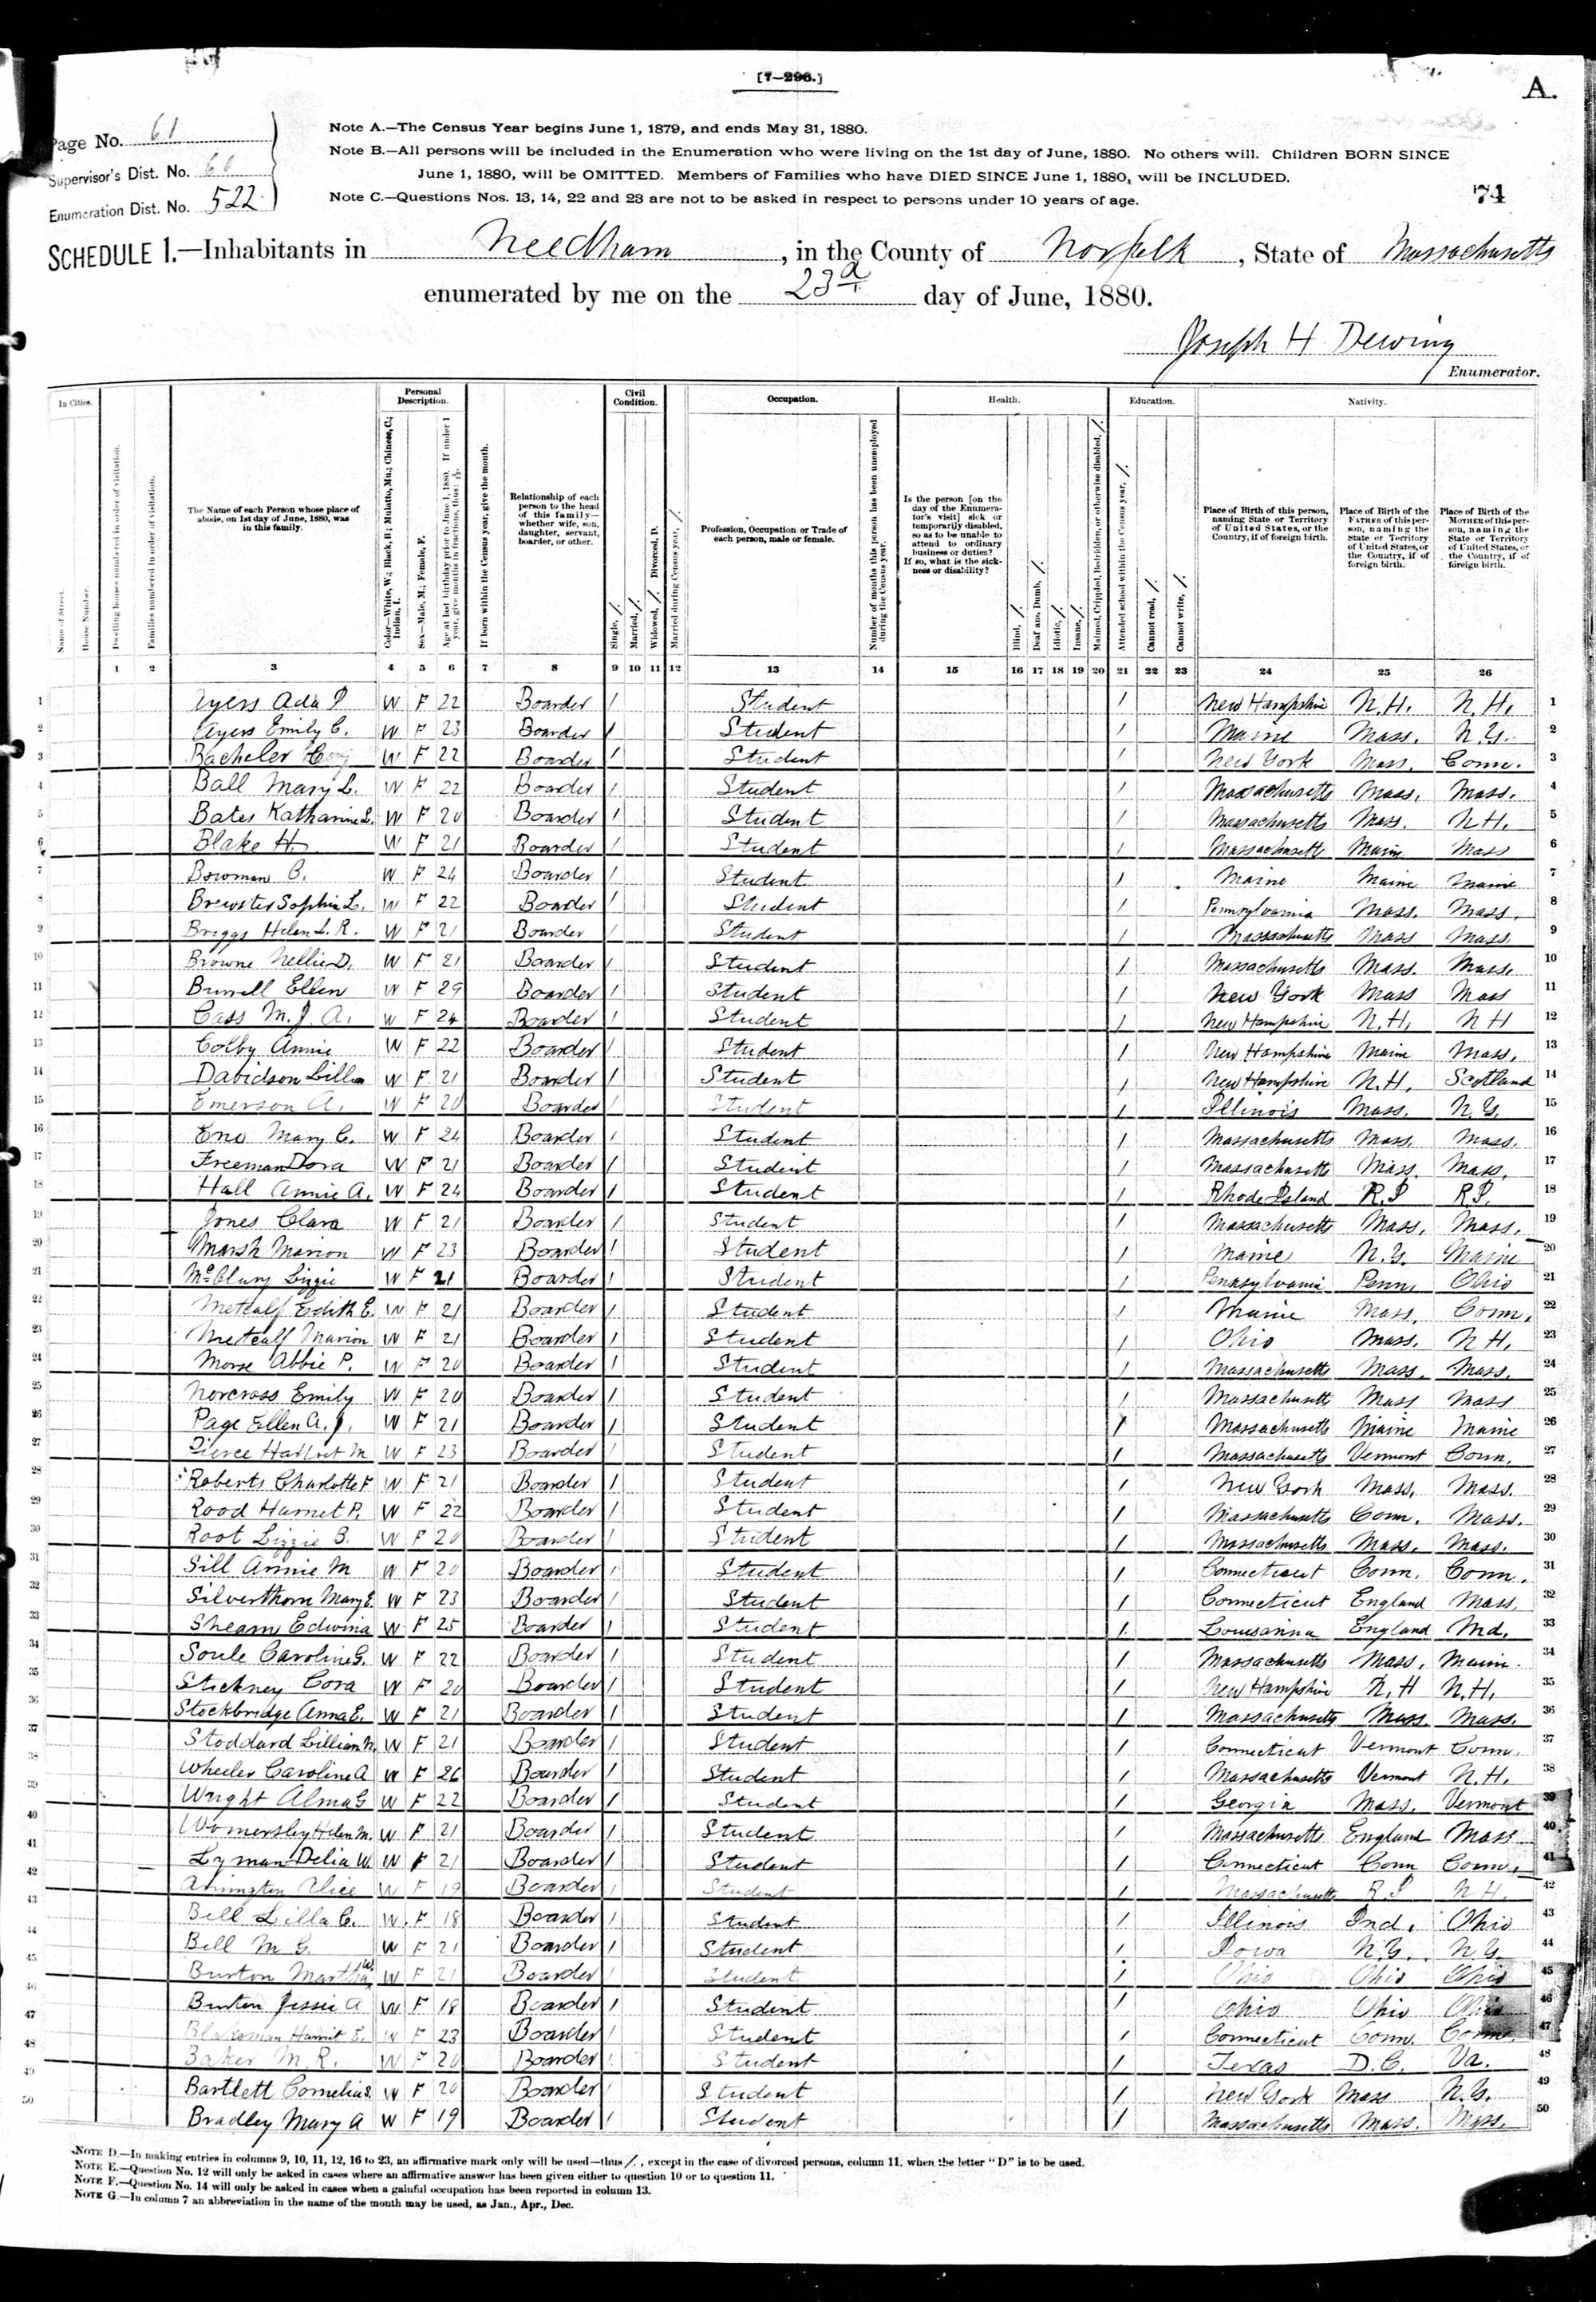 [7—296.]
A.
Page No. 61
Supervisor's Dist. No. 60
Enumeration Dist. No. 522
Note A.—The Census Year begins June 1, 1879, and ends May 31, 1880.
Note B.—All persons will be included in the Enumeration who were living on the 1st day of June, 1880. No others will. Children BORN SINCE
June 1, 1880, will be OMITTED. Members of Families who have DIED SINCE June 1, 1880, will be INCLUDED.
Note C.—Questions Nos. 13, 14, 22 and 23 are not to be asked in respect to persons under 10 years of age.
74
SCHEDULE 1.—Inhabitants in Needham, in the County of Norfolk, State of Massachusetts
enumerated by me on the 23d day of June, 1880.
Joseph H Dewing
Enumerator.
In Cities. Personal Description. Civil Condition. Occupation. Health. Education. Nativity.
Name of Street.
House Number.
Dwelling houses numbered in order of visitation.
Families numbered in order of visitation.
The Name of each Person whose place of abode, on 1st day of June, 1880, was in this family.
Color—White, W.; Black, B.; Mulatto, Mu.; Chinese, C.; Indian, I.
Sex—Male, M.; Female, F.
Age at last birthday prior to June 1, 1880. If under 1 year, give months in fractions, thus:
If born within the Census year, give the month.
Relationship of each person to the head of this family—whether wife, son, daughter, servant, boarder, or other.
Single, /.
Married, /.
Widowed, /. Divorced, D.
Married during Census year, /.
Profession, Occupation or Trade of each person, male or female.
Number of months this person has been unemployed during the Census year.
Is the person [on the day of the Enumerator's visit] sick or temporarily disabled, so as to be unable to attend to ordinary business or duties? If so, what is the sickness or disability?
Blind, /.
Deaf and Dumb, /.
Idiotic, /.
Insane, /.
Maimed, Crippled, Bedridden, or otherwise disabled, /.
Attended school within the Census year, /.
Cannot read, /.
Cannot write, /.
Place of Birth of this person, naming State or Territory of United States, or the Country, if of foreign birth.
Place of Birth of the FATHER of this person, naming the State or Territory of United States, or the Country, if of foreign birth.
Place of Birth of the MOTHER of this person, naming the State or Territory of United States, or the Country, if of foreign birth.
1 2 3 4 5 6 7 8 9 10 11 12 13 14 15 16 17 18 19 20 21 22 23 24 25 26
1 Ayers Ada W F 22 Boarder / Student / New Hampshire N.H. N.H. 1
2 Ayers Emily C. W F 23 Boarder / Student / Maine Mass. N.Y. 2
3 Bacheler W F 22 Boarder / Student / New York Mass. Conn. 3
4 Ball Mary L. W F 22 Boarder / Student / Massachusetts Mass. Mass. 4
5 Bates Katharine L. W F 20 Boarder / Student / Massachusetts Mass. N.H. 5
6 Blake H. W F 21 Boarder / Student / Massachusetts Maine Mass 6
7 Bowman C. W F 24 Boarder / Student / Maine Maine Maine 7
8 Brewster Sophia L. W F 22 Boarder / Student / Pennsylvania Mass. Mass. 8
9 Briggs Helen L. R. W F 21 Boarder / Student / Massachusetts Mass Mass. 9
10 Browne Nellie D. W F 21 Boarder / Student / Massachusetts Mass. Mass. 10
11 Burrell Ellen W F 29 Boarder / Student / New York Mass Mass 11
12 Cass M. J. A. W F 24 Boarder / Student / New Hampshire N.H. N H 12
13 Colby Annie W F 22 Boarder / Student / New Hampshire Maine Mass. 13
14 Davidson Lillia W F 21 Boarder / Student / New Hampshire N.H. Scotland 14
15 Emerson A. W F 20 Boarder / Student / Illinois Mass. N.Y. 15
16 Eno Mary C. W F 24 Boarder / Student / Massachusetts Mass. Mass. 16
17 Freeman Dora W F 21 Boarder / Student / Massachusetts Mass. Mass. 17
18 Hall Annie A. W F 24 Boarder / Student / Rhode Island R.I R.I. 18
19 Jones Clara W F 21 Boarder / Student / Massachusetts Mass. Mass. 19
20 Marsh Marion W F 23 Boarder / Student / Maine N.Y. Maine 20
21 McClury Lizzie W F 21 Boarder / Student / Pennsylvania Penn. Ohio 21
22 Metcalf Edith E. W F 21 Boarder / Student / Maine Mass. Conn. 22
23 Metcalf Marion W F 21 Boarder / Student / Ohio Mass. N H. 23
24 Morse Abbie P. W F 20 Boarder / Student / Massachusetts Mass. Mass. 24
25 Norcross Emily W F 20 Boarder / Student / Massachusetts Mass Mass 25
26 Page Ellen A. J. W F 21 Boarder / Student / Massachusetts Maine Maine 26
27 Pierce Harriet M W F 23 Boarder / Student / Massachusetts Vermont Conn. 27
28 Roberts Charlotte F W F 21 Boarder / Student / New York Mass. Mass. 28
29 Rood Harriet P. W F 22 Boarder / Student / Massachusetts Conn. Mass. 29
30 Root Lizzie B. W F 20 Boarder / Student / Massachusetts Mass. Mass. 30
31 Sill Annie M W F 20 Boarder / Student / Connecticut Conn. Conn. 31
32 Silverthorn Mary E. W F 23 Boarder / Student / Connecticut England Mass. 32
33 Shearn Edwina W F 25 Boarder / Student / Louisanna England Md. 33
34 Soule Caroline G. W F 22 Boarder / Student / Massachusetts Mass. Maine. 34
35 Stickney Cora W F 20 Boarder / Student / New Hampshire N.H N.H. 35
36 Stockbridge Anna E. W F 21 Boarder / Student / Massachusetts Mass. Mass. 36
37 Stoddard Lillian N. W F 21 Boarder / Student / Connecticut Vermont Conn. 37
38 Wheeler Caroline A W F 26 Boarder / Student / Massachusetts Vermont N.H. 38
39 Wright Alma G W F 22 Boarder / Student / Georgia Mass. Vermont 39
40 Womersley Helen M. W F 21 Boarder / Student / Massachusetts England Mass 40
41 Lyman Delia W. W F 21 Boarder / Student / Connecticut Conn Conn. 41
42 Arrington Alice W F 19 Boarder / Student / Massachusetts R I N H. 42
43 Bill Lilla C. W. F 18 Boarder / Student / Illinois Ind. Ohio 43
44 Bill M G. W F 21 Boarder / Student / Iowa N.Y. N.Y. 44
45 Burton Martha W. W F 21 Boarder / Student / Ohio Ohio Ohio 45
46 Burton Jessie A W F 18 Boarder / Student / Ohio Ohio Ohio 46
47 Blakeman Harriet E. W F 23 Boarder / Student / Connecticut Conn. Conn. 47
48 Baker M. R. W F 20 Boarder / Student / Texas D.C. Va. 48
49 Bartlett Cornelia S. W F 20 Boarder / Student / New York Mass N.Y. 49
50 Bradley Mary A W F 19 Boarder / Student / Massachusetts Mass. Mass. 50
NOTE D.—In making entries in columns 9, 10, 11, 12, 16 to 23, an affirmative mark only will be used—thus /., except in the case of divorced persons, column 11, when the letter "D" is to be used.
NOTE E.—Question No. 12 will only be asked in cases where an affirmative answer has been given either to question 10 or to question 11.
NOTE F.—Question No. 14 will only be asked in cases when a gainful occupation has been reported in column 13.
NOTE G.—In column 7 an abbreviation in the name of the month may be used, as Jan., Apr., Dec.